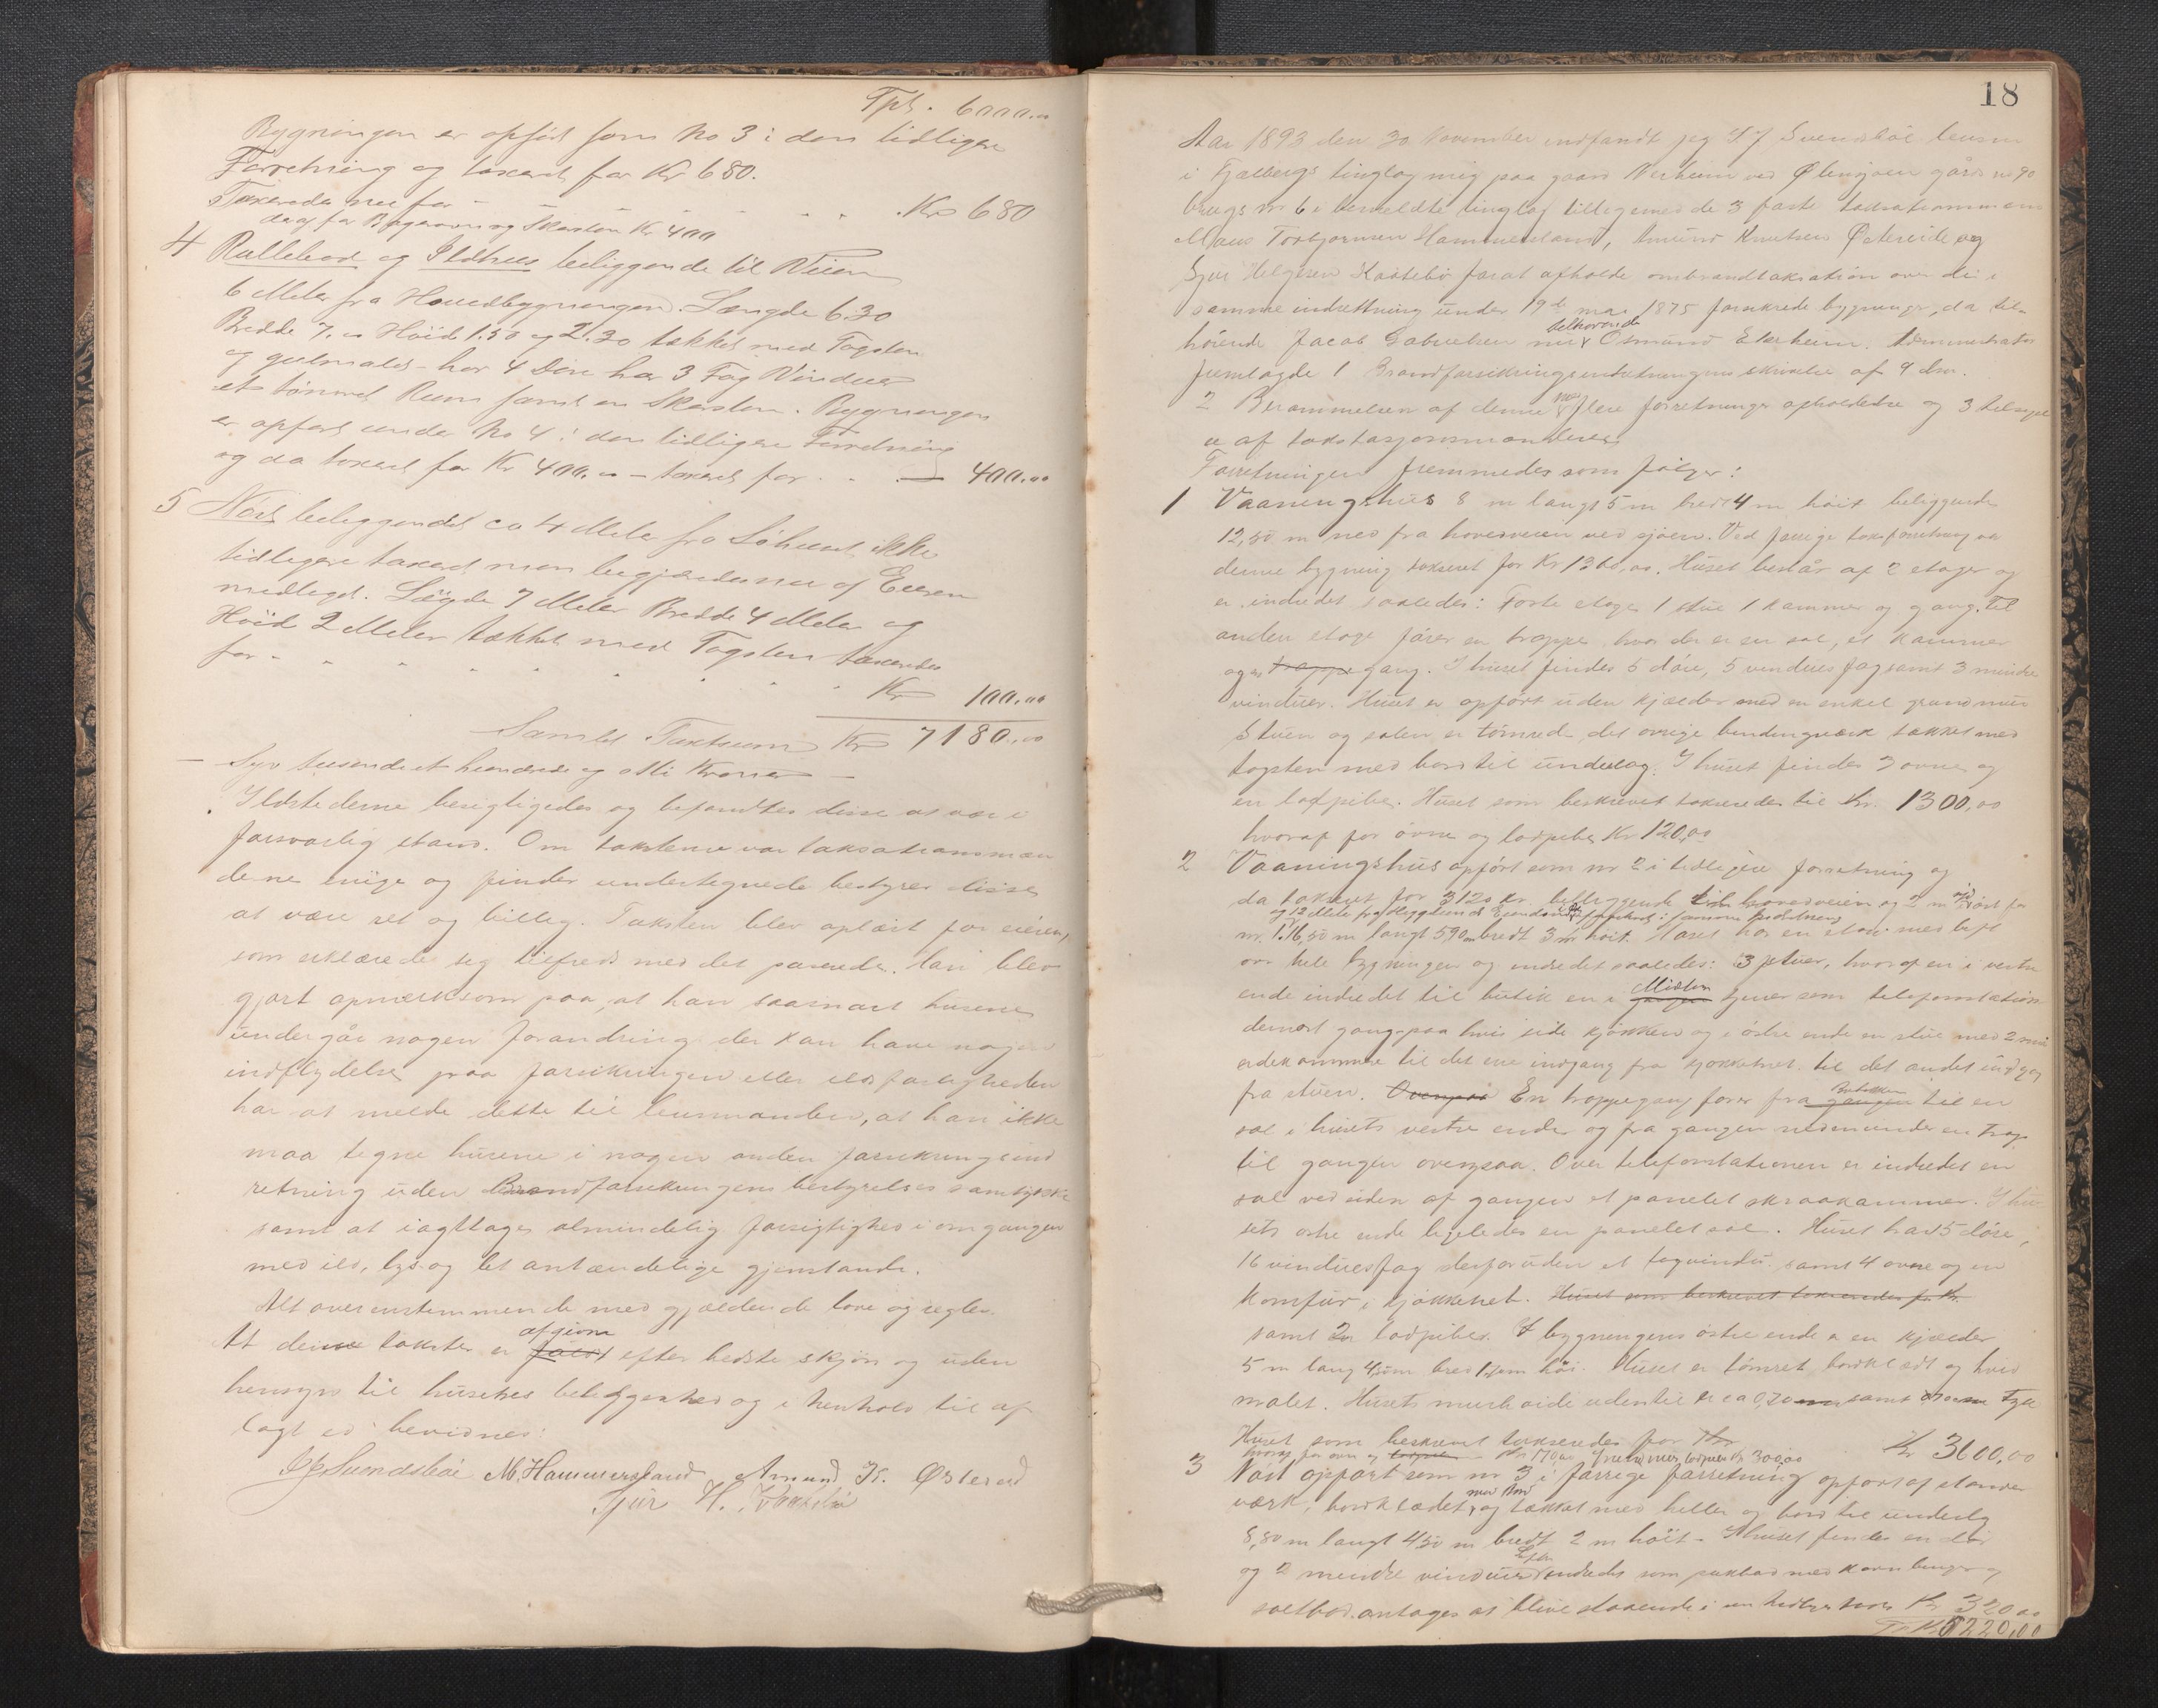 Tpt. 6000.00
Bygningen er opført som No 3 i den tidligere
Forretning og taxeret for Kr 680.
Taxeredes nu for - - - - - - Kr 680
deraf for Bagerovn og Skorsten Kr 400
4 Rullebod og Ildhus beliggende til Veien
6 Meter fra Hovedbygningen. Længde 6.30
Bredde 7.00 Høide 1.50 og 2.30 tækket med Tagsten
og gulmalet - har 4 Døre har 3 Fag Vinduer
et tømret Rum samt en Skorsten. Bygningen
er opført under No 4 i den tidligere Forretning
og da taxeret for Kr 400.00 - taxeret for . . . — 400.00
5 Nøst beliggende ca 4 Meter fra Søhuset, ikke
tidligere taxeret men begjæredes nu af Eieren
medtaget. Længde 7 Meter Bredde 4 Meter og
Høide 2 Meter tækket med Tagsten taxeredes
for - - - - - - - -
Kr 100.00
Samlet Taxtsum Kr 7180.00
— Syv tusende et hundrede og otti Kroner —
Ildstederne besigtigedes og befandtes disse at være i
forsvarlig stand. Om taksterne var taksationsmæn
dene enige og finder undertegnede bestyrer disse
at være ret og billig. Taksten blev oplæst for eieren,
som erklærede sig tilfreds med det passerede. Han blev
gjort opmærksom paa, at han saasnart husene
undergår nogen forandring der kan have nogen
indflydelse paa forsikringen eller ildsfarligheden
har at melde dette til lensmanden, at han ikke
maa tegne husene i nogen anden forsikringsind
retning uden Brandforsikringens bestyrelses samtykke
samt at iagttages almindelig forsigtighed i omgangen
med ild, lys og let antændelige gjenstande.
Alt overensstemmende med gjældende love og regler.
afgivne
At denne takster er efter bedste skjøn og uden
hensyn til husenes beliggenhed og i henhold til af
lagt ed bevidnes:
M. Hammersland Amund K. Østereid
Sjur H.
18
Aar 1893 den 30 November indfandt jeg
i Fjælbergs tinglag mig paa gaard Nerheim ved Ølensjøen gårds no 90
brugs nr 6 i bemeldte tinglag tilligemed de 3 faste taksationsmænd
Maus Torbjørnsen Hammersland, Amund Knutsen Østereide og
Sjur Helgesen for at afholde ombrandtaksation over de i
samme indretning under 19de mai 1875 forsikrede bygninger, da til-
tilhørende
hørende Jacob Gabrielsen nu Osmund Eterheim.
fremlagde 1 Brandforsikringsindretningens skrivelse af 9 dm.
2 Berammelsen af denne flere forretninger afholdelse og 3
af takstasjonsmændene
Forretningen fremmedes som følger:
1 Vaaningshus 8 m langt 5 m bredt 4 m høit beliggende
12,50 m ned fra hovedveien ved sjøen. Ved forrige taksforretning var
denne bygning takseret for Kr 1360,00. Huset består af 2 etager og
er indredet saaledes: Første etage 1 stue 1 kammer og gang. Til
anden etage fører en trappe, hvor der er en sal, et kammer
og en trappegang. I huset findes 5 døre, 5 vinduesfag samt 3 mindre
vinduer. Huset er opført uden kjælder med en enkel grundmur
Stuen og salen er tømred, det øvrige bindingsværk takket med
tagsten med bord til underlag. I huset findes 3 ovne og
en lodpibe. Huset som beskrevet takseredes til Kr. 1300,00
hvoraf for ovne og lodpibe Kr 120,00
2 Vaaningshus opført som nr 2 i tidligere forretning og
da takseret for 3120 kr beliggende til hovedveien og 2 m øst for
og 12 Meter fra
nr. 1. 16,50 m langt 5,90 m bredt 3 m høit. Huset har en etage med loft
over hele bygningen og indredet saaledes: 3 stuer, hvoraf en i vestre
Midten
ende indredet til butik en i tjener som telefonstation
dernæst gang, paa hvis side kjøkken og i østre ende en stue med 2 små
sidekammere til det ene indgang fra kjøkkenet til det andet indgang
Butikken
fra stuen. Ovenpaa En trappegang fører fra gangen til en
sal i husets vestre ende og fra gangen nedenunder en trap
til gangen ovenpaa. Over telefonstationen er indredet en
sal ved siden af gangen et panelet skraakammer. I hu
sets østre ende ligeledes en panelet sal. Huset har 15 døre,
16 vinduesfag desforuden et tagvindu samt 4 ovne og en
komfur i kjøkkenet. Huset som beskrevet takseredes for Kr.
samt 2 lodpiber. I bygningens østre ende er en kjælder
5 m lang 4,50 m bred høi. Huset er tømret, bordklædt og hvid
malet. Husets murhøide udentil er ca 0,70 samt
Huset som beskrevet takseredes for Kr 3600,00
hvoraf for ovne og Kr 170,00 lodpiber Kr 300,00
3 Nøst opført som nr 3 i forrige forretning opført af stander
værk, bordklædet, og takket med heller og bord til underlag
8,80 m langt 4,50 m bredt 2 m høit - I huset findes en dør
og 2 mindre vinduer indredet som pakbod med kornbinger og
saltbod. antages at blive staaende i en Kr 320,00
Tr Kr 5220,00